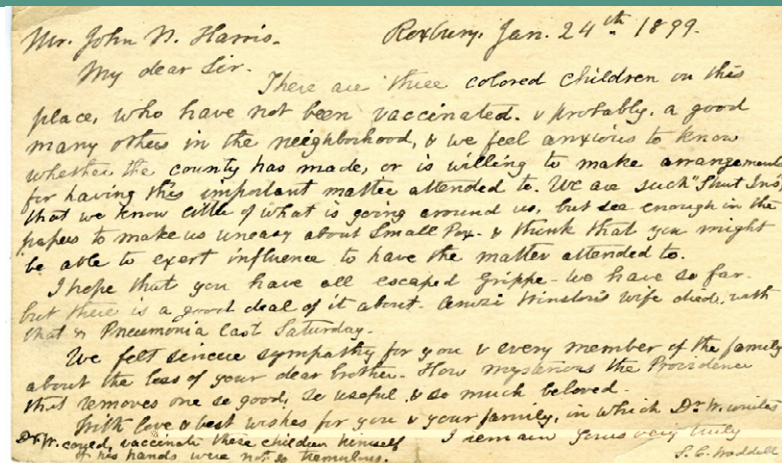 Mr. John N. Harris. Roxbury. Jan. 24th 1899.
My dear Sir.
There are three colored children on this
place, who have not been vaccinated. & probably, a good
many others in the neighborhood, & we feel anxious to know
whether the county has made, or is willing to make arrangements
for having this important matter attended to. We are such "Shut Ins"
that we know little of what is going around us, but see enough in the
papers to make us uneasy about Small Pox. & think that you might
be able to exert influence to have the matter attended to.
I hope that you have all escaped Grippe - we have so far.
but there is a good deal of it about. Winston's wife died, with
that & Pneumonia last Saturday.
We felt sincere sympathy for you & every member of the family
about the loss of your dear brother. How mysterious the Providence
that removes one so good, so useful, & so much beloved.
With love & best wishes for you & your family, in which Dr. W. unites
I remain yours very truly
S. E. Waddell
Dr. W. could, vaccinate these children himself
if his hands were not so tremulous.